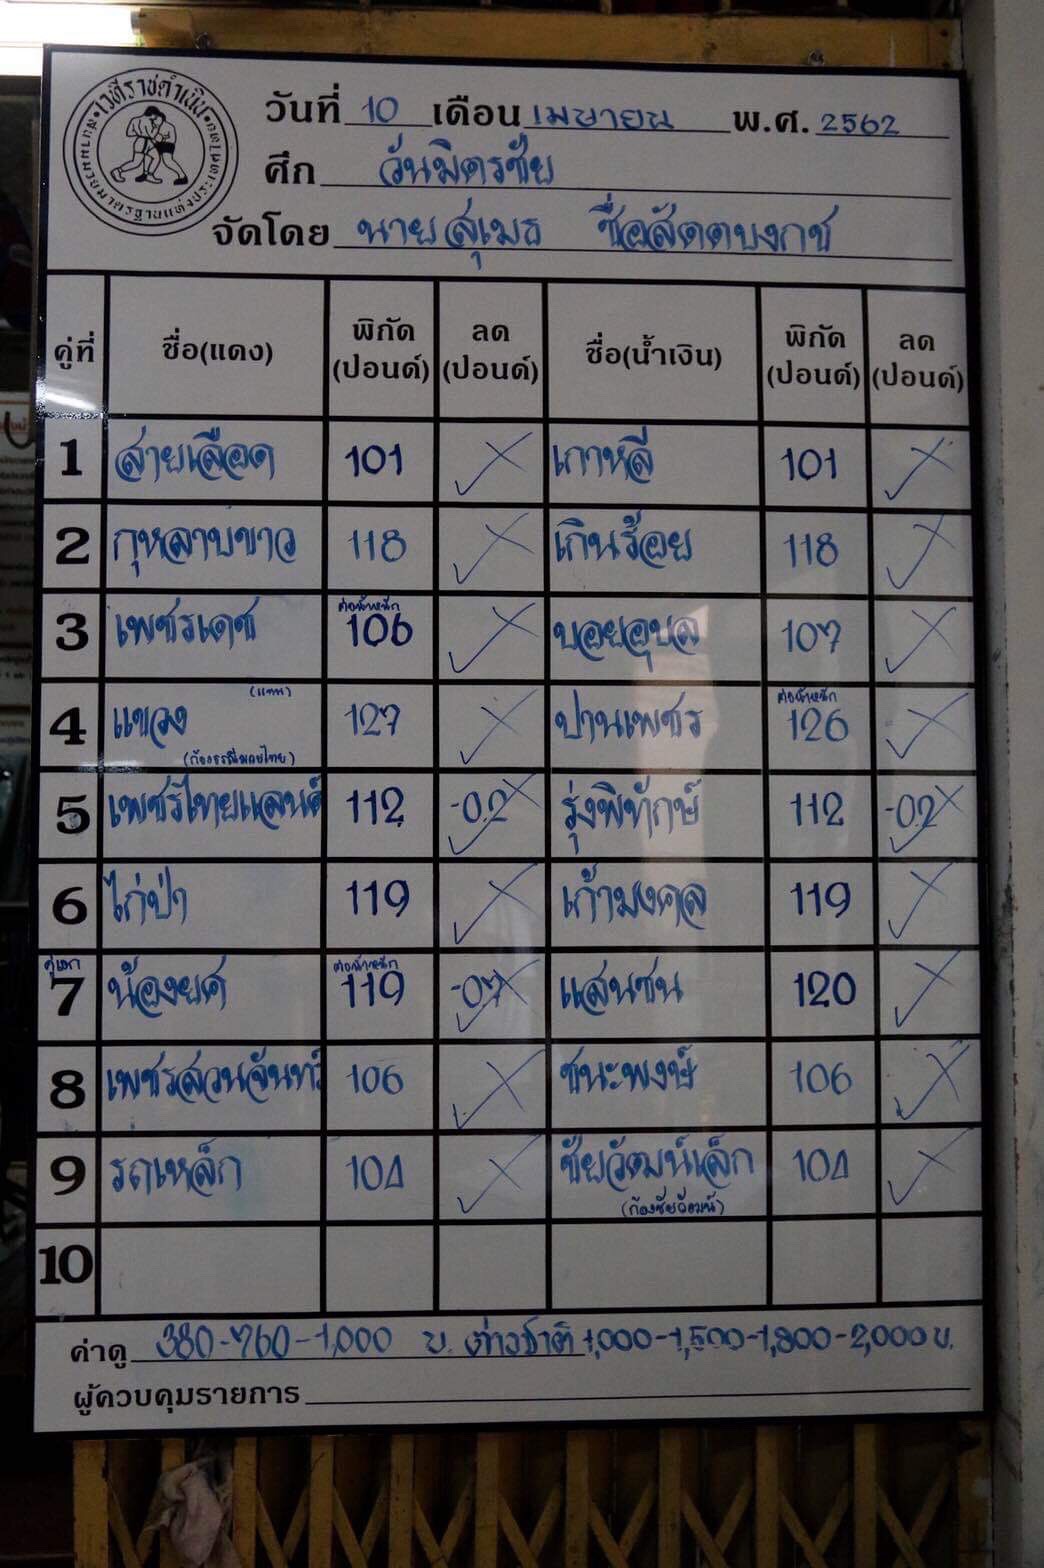 เวทีราชดำเนิน
วันที่ 10 เดือน เมษายน พ.ศ. 2562
ศึก วันมิตรชัย
จัดโดย นายสุเมธ ซื่อสัตตบงกช
คู่ที่ ชื่อ(แดง) พิกัด (ปอนด์) ลด (ปอนด์) ชื่อ(น้ำเงิน) พิกัด (ปอนด์) ลด (ปอนด์)
1 สายเลือด 101 เกาหลี 101
2 กุหลาบขาว 118 เกินร้อย 118
3 เพชรเดช ต่อน้ำหนัก 106 บอยอุบล 107
4 แขวง (แทน) 127 ปานเพชร ต่อน้ำหนัก 126
5 เพชรไทยแลนด์ 112 -0.2 รุ่งพิทักษ์ 112 -0.2
6 ไก่ป่า 119 เก้ามงคล 119
คู่เอก
7 น้องยศ ต่อน้ำหนัก 119 -0.7 แสนชน 120
8 เพชรสวนจันทร์ 106 ชนะพงษ์ 106
9 รถเหล็ก 104 ชัยวัฒน์เล็ก 104
(ก้องชัยวัฒน์)
10
ค่าดู 380-760-1,000 บ. ต่าวชาติ 1,000-1,500-1,800-2,000 บ.
ผู้ควบคุมรายการ